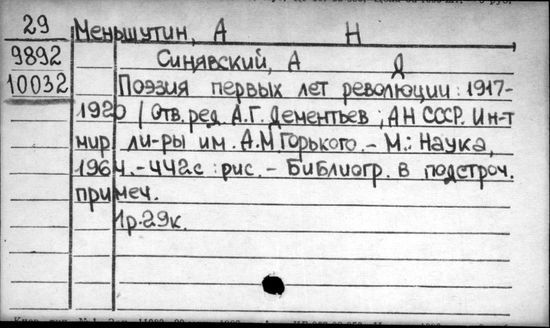 29 Меньшутин, А Н
9892 Синявский, А Д
10032 Поэзия первых лет революции: 1917-
1920 / Отв. ред. А.Г. Дементьев ; АН СССР. Ин-т
мир ли-ры им. А.М Горького. - М.: Наука,
1964. - 442с : рис. - Библиогр. в подстроч.
примеч.
1р. 29к.